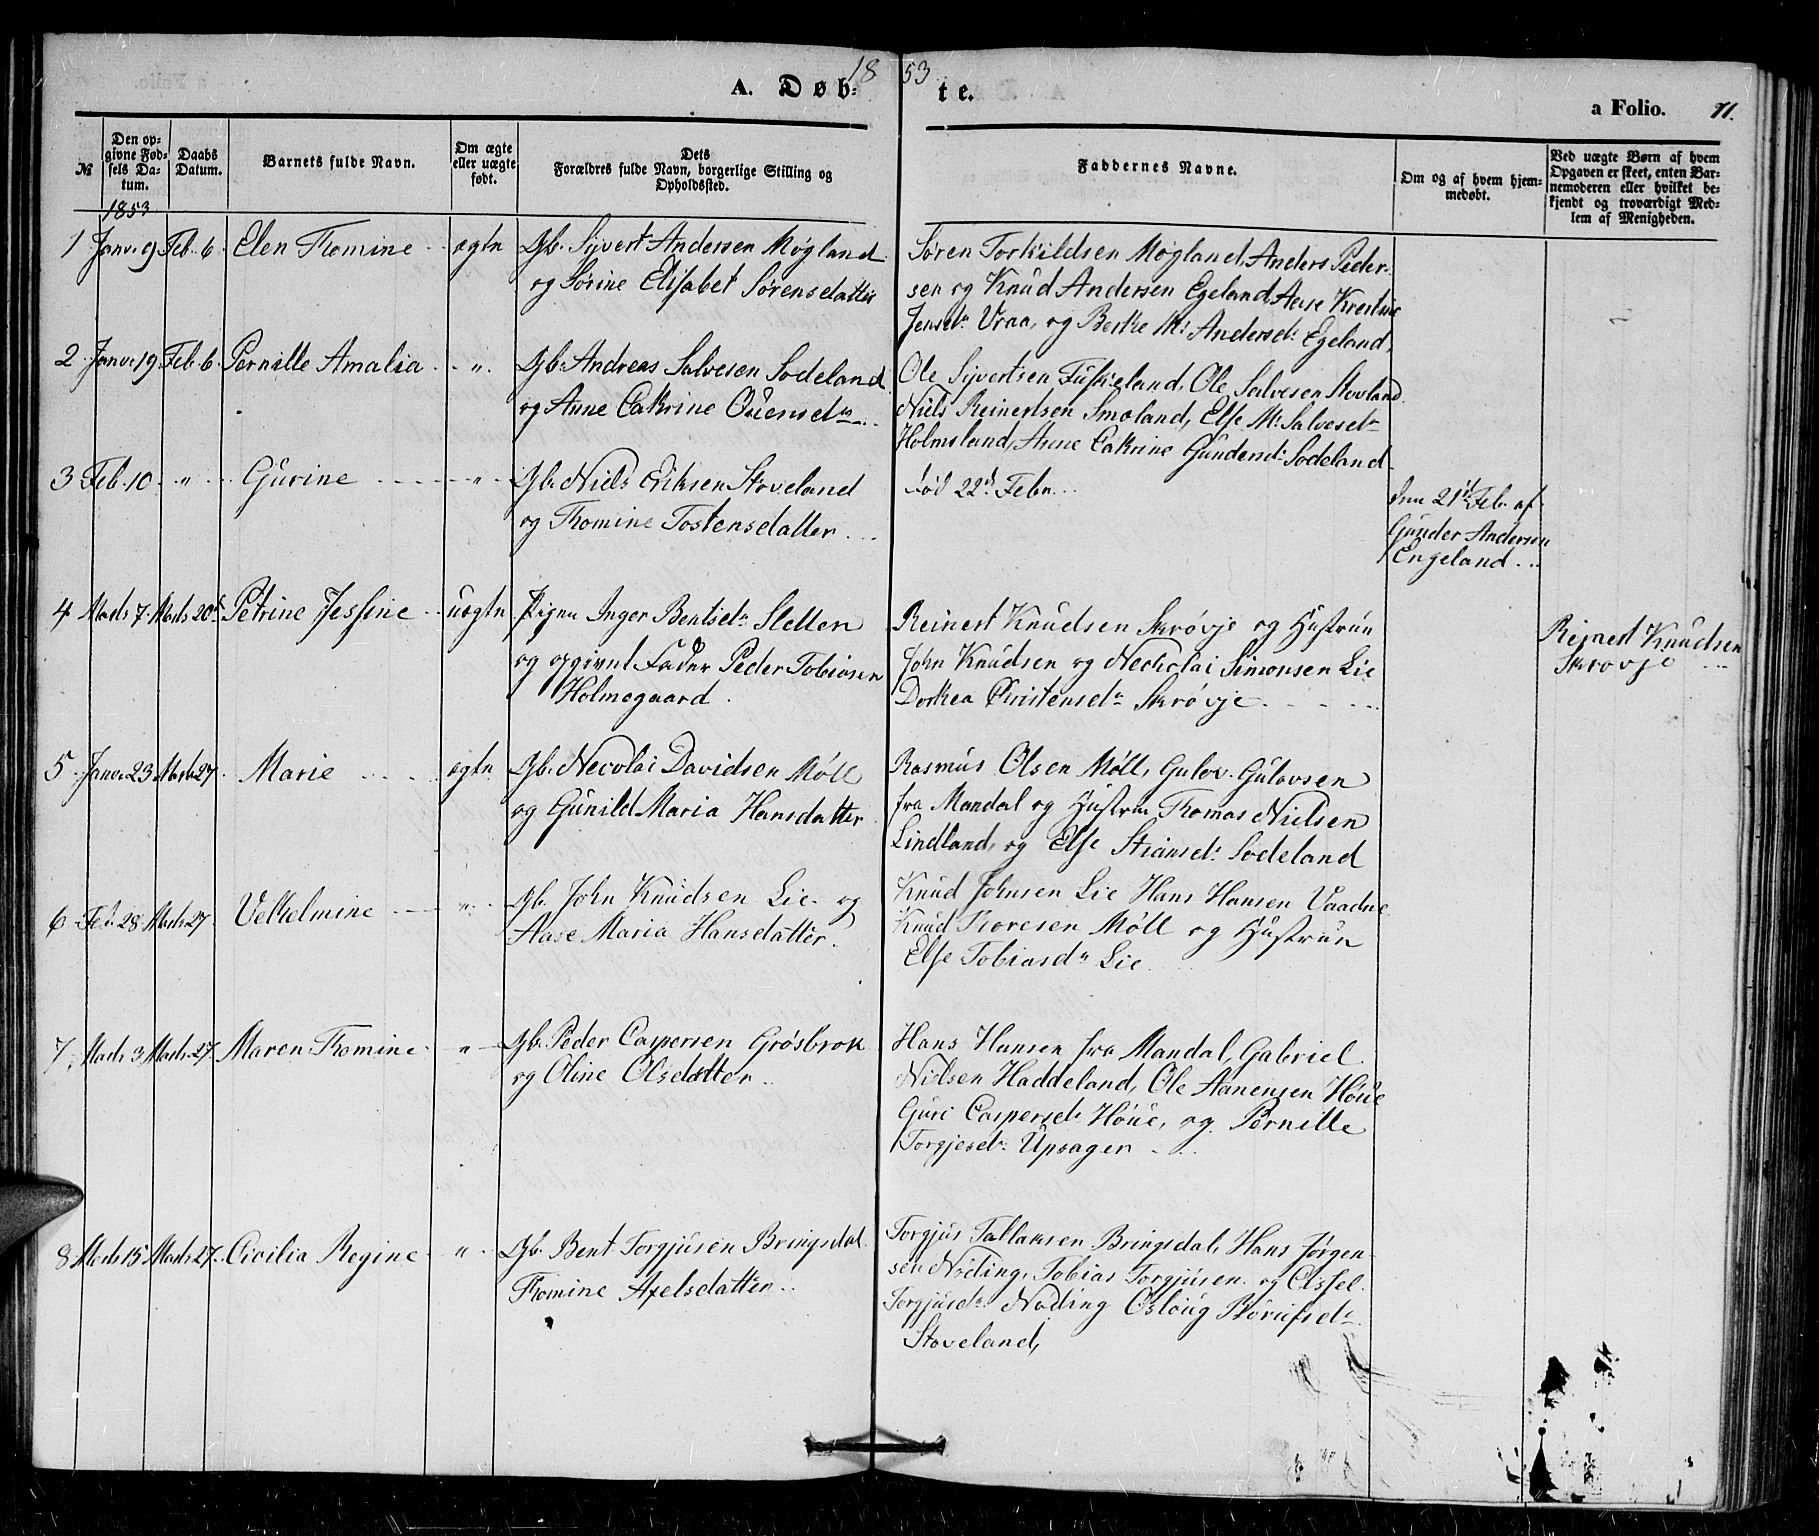 1853
A. Døb= te.
a Folio. 71.
№
Den op-
givne Fød-
sels Da-
tum.
Daabs
Datum.
Barnets fulde Navn.
Om ægte
eller uægte
født.
Dets
Forældres fulde Navn, borgerlige Stilling og
Opholdssted.
Faddernes Navne.
Om og af hvem hjem-
medøbt.
Ved uægte Børn af hvem
Opgaven er skeet, enten Bar-
nemoderen eller hvilket be-
kjendt og troværdigt Med-
lem af Menigheden.
1853
1 Janv. 9 Feb. 6 Elen Thomine ægte Gb. Sivert Andersen Møgland
og Sørine Elisabet Sørensdatter
Søren Torkildsen Møgland, Anders Peder-
sen og Knud Andersen Egeland Aase Kirstine
Jensdr Vraa, og Berthe M. Andersdr Egeland,
2 Janv. 19 Feb. 6 Pernille Amalia " Gb. Andreas Salvesen Sodeland
og Anne Cathrine
Ole Sivertsen Fuskeland, Ole Salvesen Stovland
Niels Reinertsen Smoland, Else M. Salvesdr
Holmsland, Anne Cathrine Sodeland
3 Feb. 10 " Gurine " Gb. Niels Eriksen Stoveland
og Thomine Tostensdatter
død 22d Febr.
den 21d Feb. af
Gunder Andersen
Engeland
4 Marts 7 Marts 20d Petrine Jessine uægte Pigen Inger Bentsdr Sletten
og opgivet Fader Peder Tobiasen
Holmegaard.
Reinert Knudsen Skrøvje og Hustrue
John Knudsen og Nicholai Simonsen Lie
Dorthea Christensdr Skrøvje
Reinert Knudsen
Skrovje
5 Janv. 23 Marts 27 Marie ægte Gb. Necolai Davidsen Møll
og Gunild Maria Hansdatter
Rasmus Olsen Møll, Gulov Gulovsen
fra Mandal og Hustrue Thomas Nielsen
Lindland, og Else Stiansdr Sodeland
6 Feb. 28 Marts 27 Velhelmine " Gb. John Knudsen Lie og
Aase Maria Hansdatter.
Knud Johnsen Lie Hans Hansen Vaadne
Knud Thoresen Møll og Hustrue
Else Tobiasdr Lie
7 Marts 3 Marts 27 Maren Thomine " Gb. Peder Caspersen Grøsbrok
og Oline Olsdatter
Hans Hansen fra Mandal, Gabriel
Nielsen Haddeland, Ole Aanensen Høüe
Guri Caspersdr Høüe, og Pernille
Torgjesdr Upsager
8 Marts 15 Marts 27 Cicilia Regine " Gb. Bent Torgjusen Bringsdal
Thomine Axelsdatter
Torgjus Tallaksen Bringsdal, Hans Jørgen-
sen Nøding, Tobias Torgjusen og Cissel
Torgjusdr Noding Osloug
Stoveland,